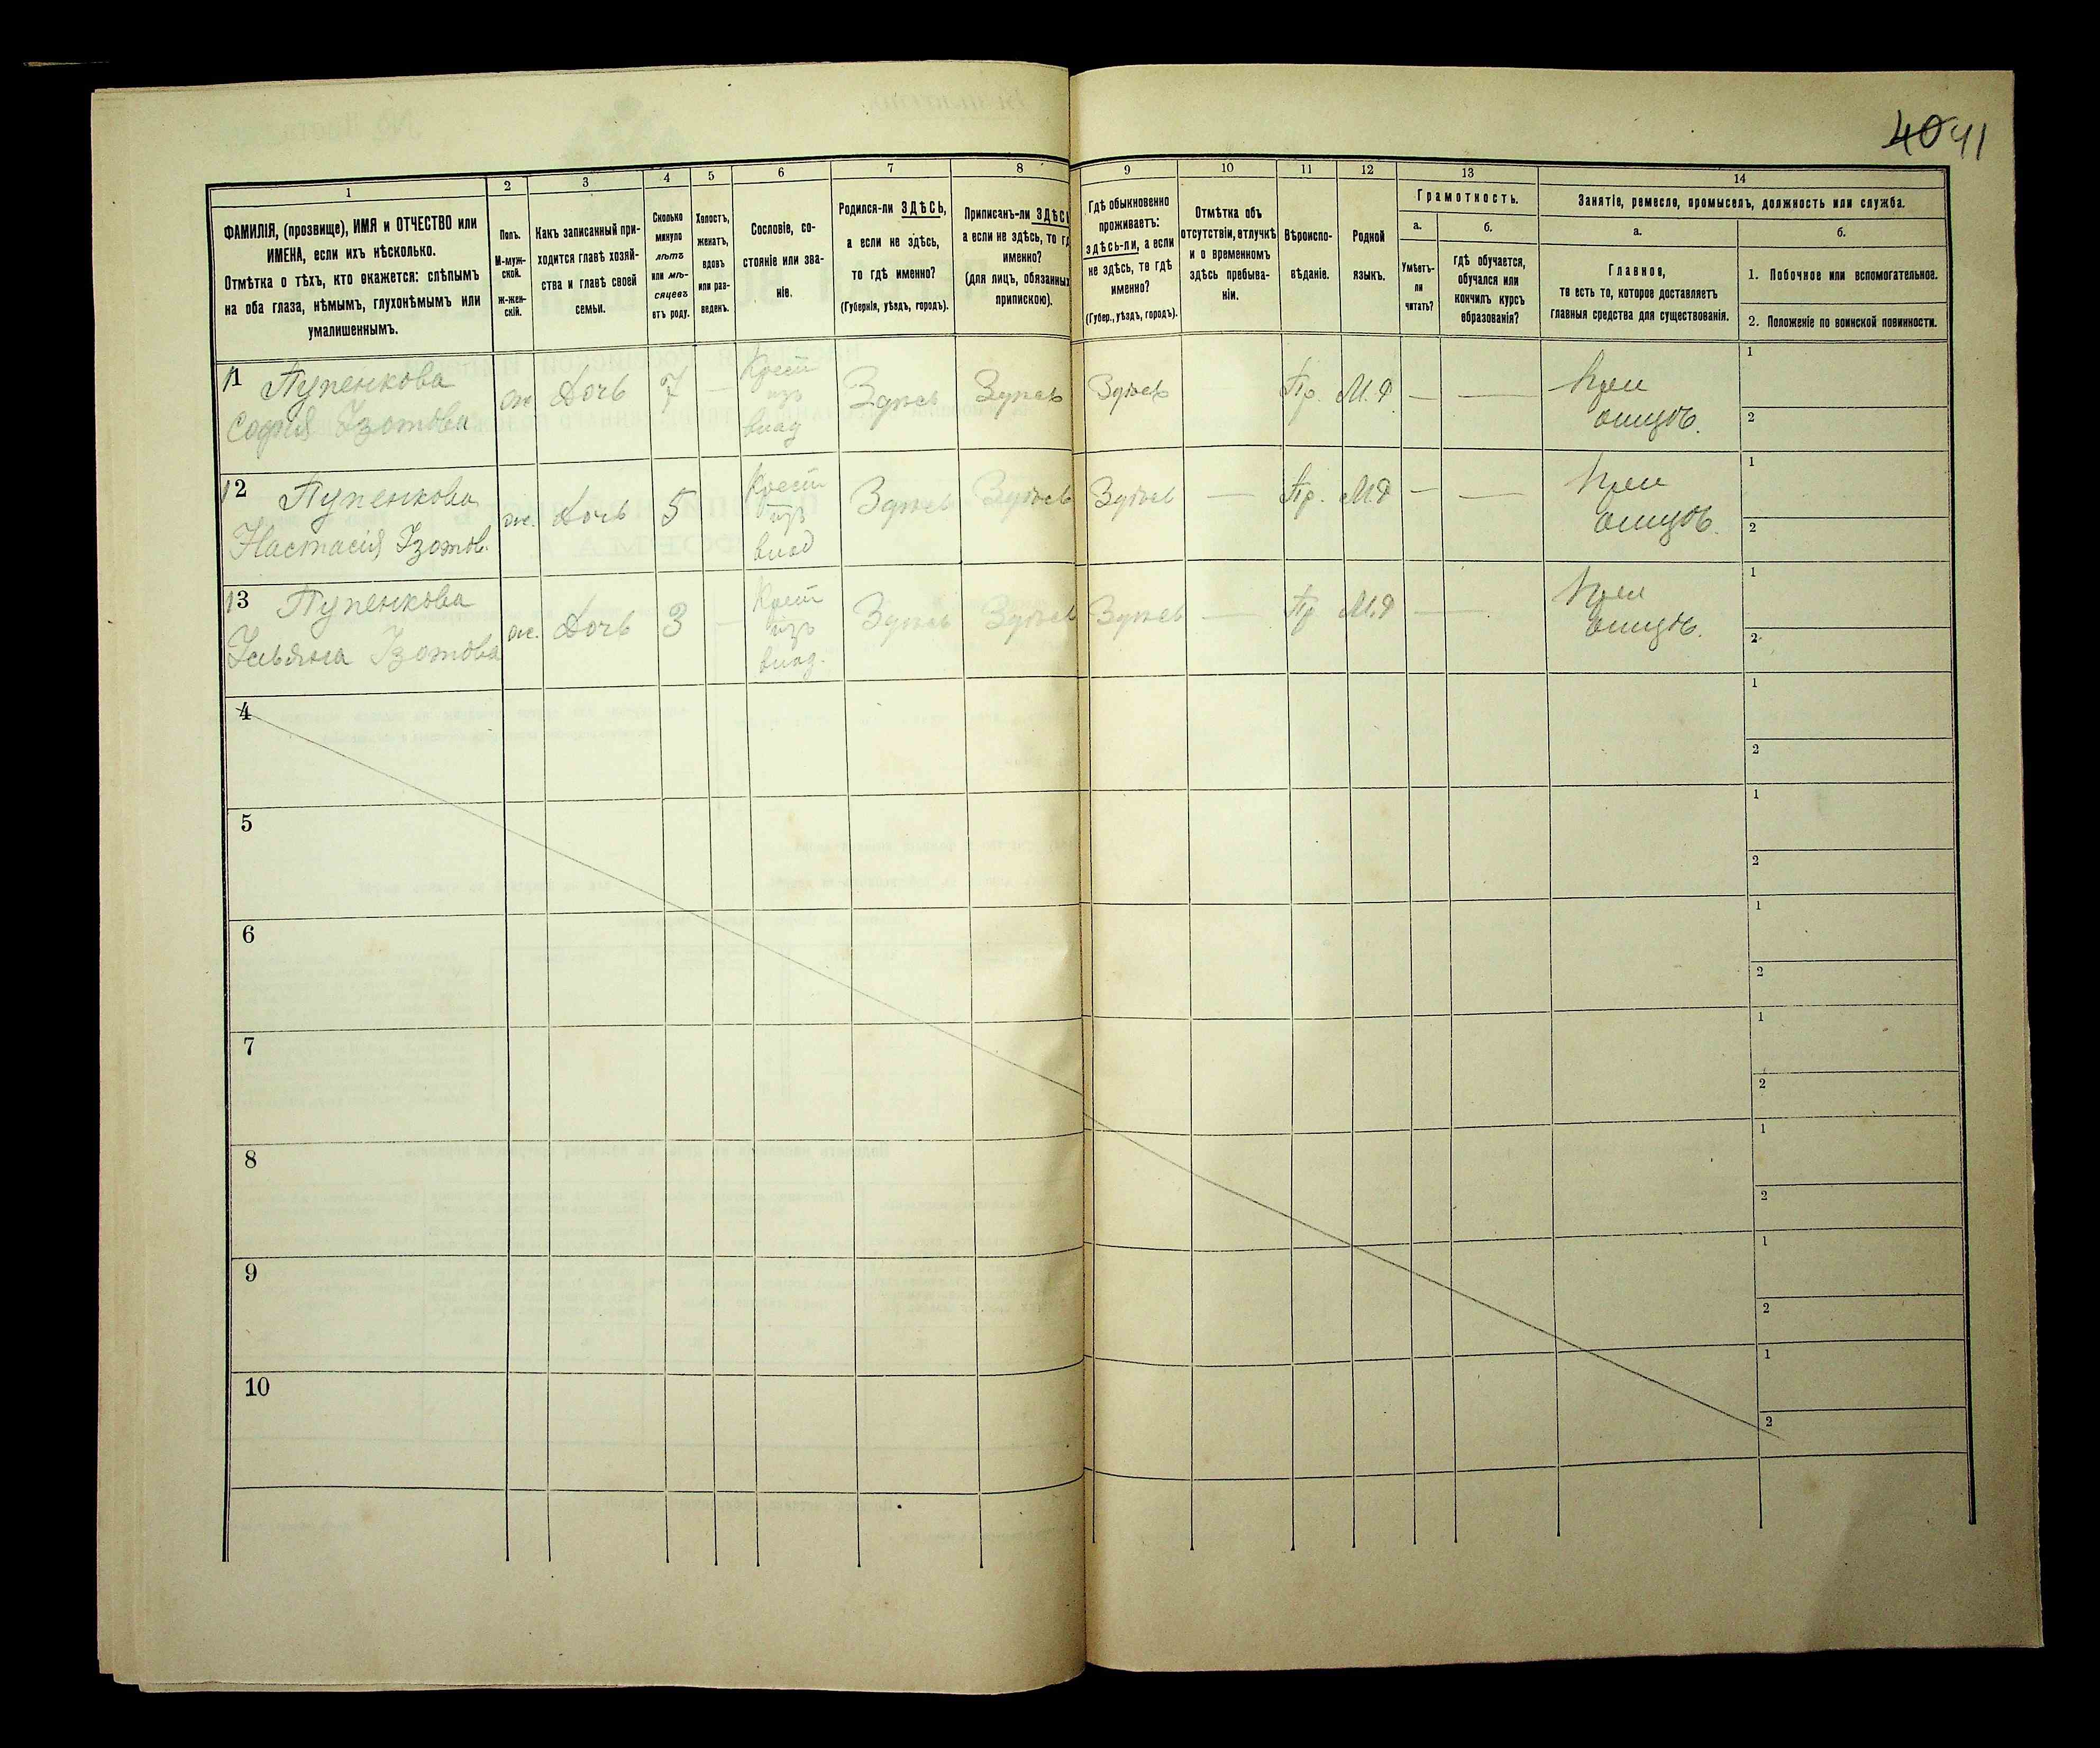 40 41
1
2
3
4
5
6
7
8
9
10
11
12
13
14
ФАМИЛІЯ, (прозвище), ИМЯ и ОТЧЕСТВО или
ИМЕНА, если ихъ нѣсколько.
Отмѣтка о тѣхъ, кто окажется: слѣпымъ
на оба глаза, нѣмымъ, глухонѣмымъ или
умалишеннымъ.
Полъ.
М-муж-
ской.
ж-жен-
скій.
Какъ записанный при-
ходится главѣ хозяй-
ства и главѣ своей
семьи.
Сколько
минуло
лѣтъ
или мѣ-
сяцевъ
отъ роду.
Холостъ,
женатъ,
вдовъ
или раз-
веденъ.
Сословіе, со-
стояніе или зва-
ніе.
Родился-ли ЗДѢСЬ,
а если не здѣсь,
то гдѣ именно?
(Губернія, уѣздъ, городъ).
Приписанъ-ли ЗДѢСЬ
а если не здѣсь, то гд
именно?
(для лицъ, обязанныхъ
припискою).
Гдѣ обыкновенно
проживаетъ:
здѣсь-ли, а если
не здѣсь, то гдѣ
именно?
(Губер., уѣздъ, городъ).
Отмѣтка объ
отсутствіи, отлучкѣ
и о временномъ
здѣсь пребыва-
ніи.
Вѣроиспо-
вѣданіе.
Родной
языкъ.
Грамотность.
а.
б.
Умѣетъ-
ли
читать?
гдѣ обучается,
обучался или
кончилъ курсъ
образованія?
Занятіе, ремесло, промыселъ, должность или служба.
а.
б.
Главное,
то есть то, которое доставляетъ
главныя средства для существованія.
1. Побочное или вспомогательное.
2. Положеніе по воинской повинности.
11 Пупенкова
Софія Изотова
ж
Дочь
7
—
Крест
изъ
влад
Здѣсь
Здѣсь
Здѣсь
Пр.
М.Р.
—
—
При
отцѣ.
1
2
12 Пупенкова
Настасія Изотов.
ж.
Дочь
5
Крест
изъ
влад
Здѣсь
Здѣсь
Здѣсь
—
Пр.
М.Р
—
—
При
отцѣ.
1
2
13 Пупенкова
Ульяна Изотова
ж.
Дочь
3
—
Крест
изъ
влад.
Здѣсь
Здѣсь
Здѣсь
—
Пр
М.Р
—
При
отцѣ.
1
2
4
1
2
5
1
2
6
1
2
7
1
2
8
1
2
9
1
2
10
1
2